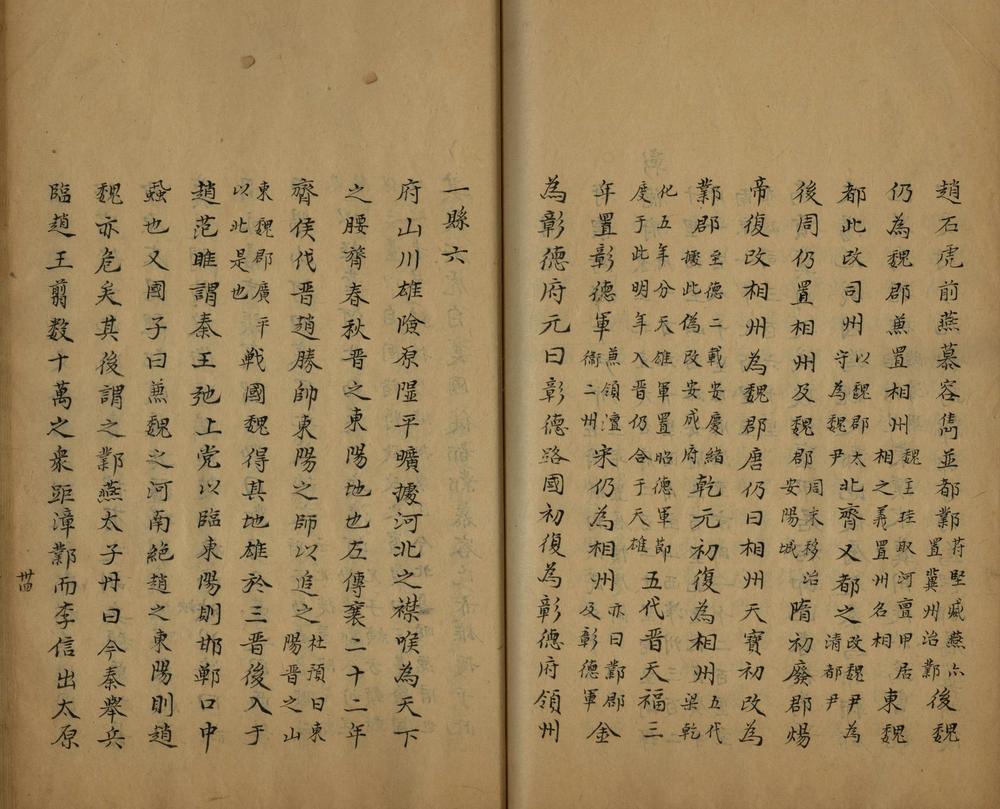 趙石虎前燕慕容儁並都鄴苻堅臧燕亦置冀州治鄴後魏
仍為魏郡兼置相州魏主珪取河亶甲居相之義置州名相東魏
都此改司州以魏郡太守為魏尹北齊又都之改魏尹為清都尹
後周仍置相州及魏郡周末移治安陽城隋初廢郡煬
帝復改相州為魏郡唐仍曰相州天寶初改為
鄴郡至德二載安慶緒㨿此偽改安成府乾元初復為相州五代梁乾
化五年分天雄軍置昭德軍節度于此明年入晉仍合于天雄五代晉天福三
年置彰德軍兼領澶衞二州宋仍為相州亦曰鄴郡及彰德軍金
為彰德府元曰彰德路國初復為彰德府領州
一縣六
府山川雄險原隰平曠㨿河北之襟喉為天下
之腰膂春秋晉之東陽地也左傳襄二十二年
齊侯伐晉趙勝帥東陽之師以追之杜預曰東陽晉之山
東魏郡廣平以北是也戰國魏得其地雄於三晉後入于
趙范睢謂秦王弛上党以臨東陽則邯鄲口中
蝨也又國子曰兼魏之河南絕趙之東陽則趙
魏亦危矣其後謂之鄴燕太子丹曰今秦舉兵
臨趙王翦数十萬之衆距漳鄴而李信出太原